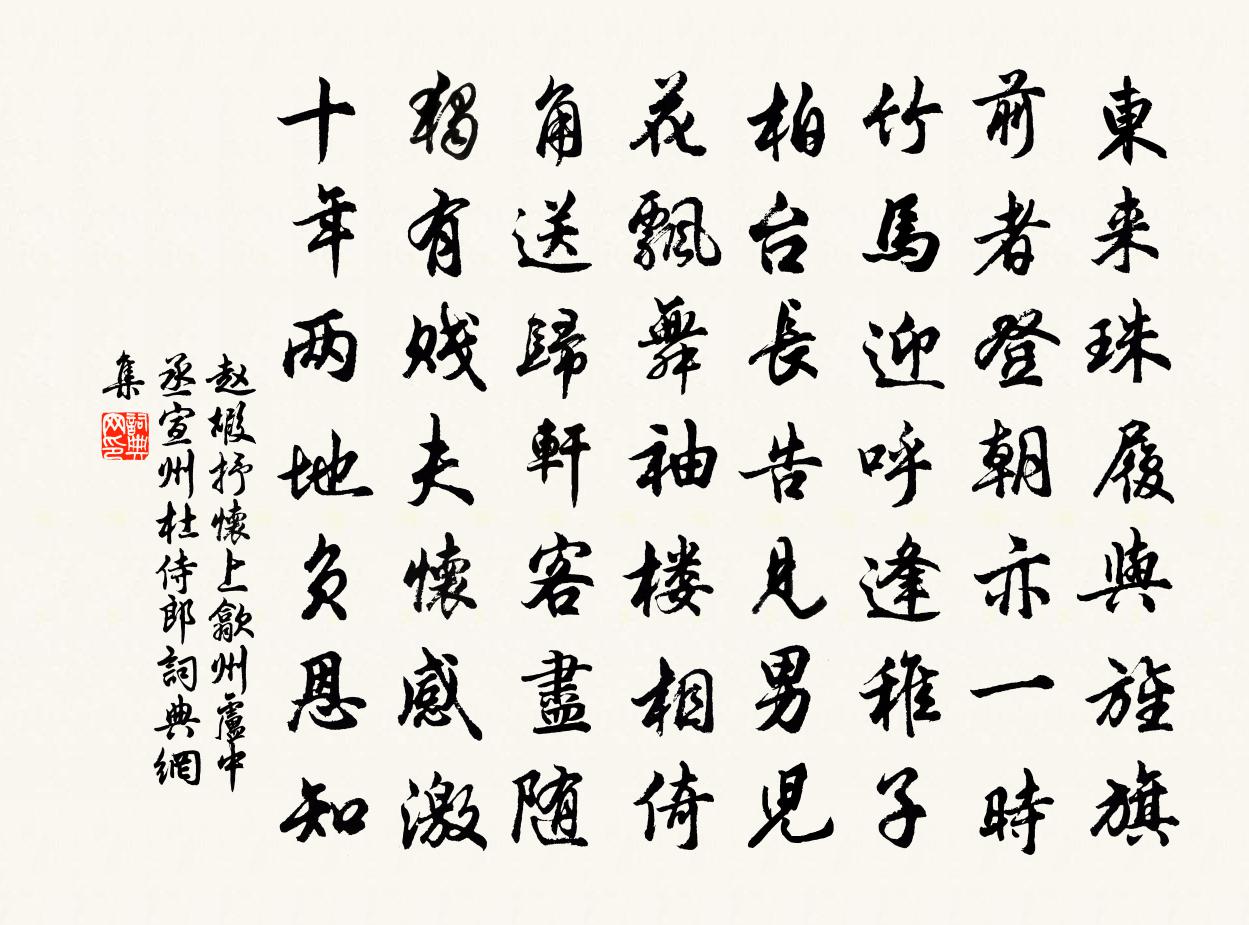 東来珠履與旌旗
前者登朝亦一時
竹馬迎呼逢稚子
柏台長告見男児
花飄舞袖楼相倚
角送歸軒客盡随
獨有賤夫懷感激
十年两地负恩知
赵嘏抒懷上歙州盧中
丞宣州杜侍郎詞典網
集
詞典网印